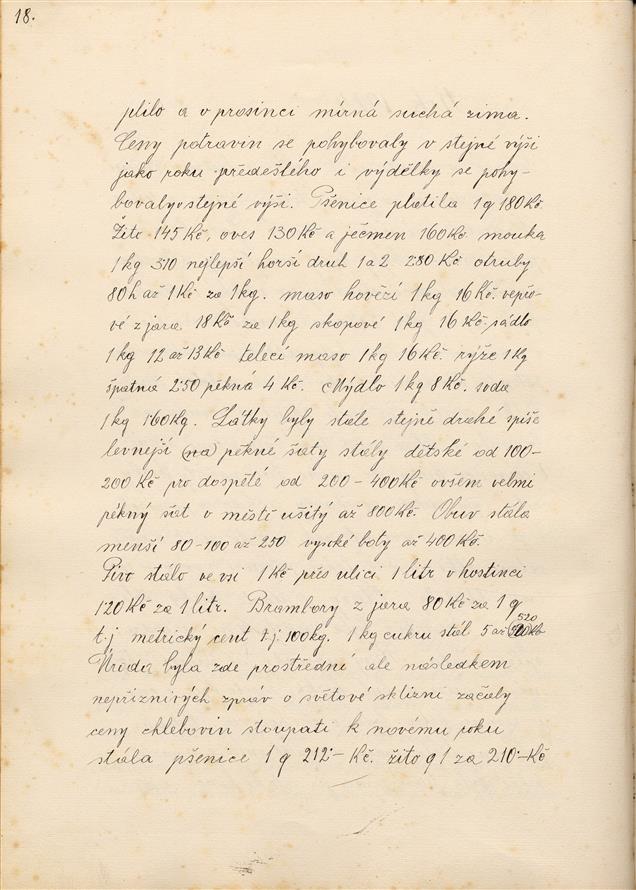 18.
plilo a v prosinci mírná suchá zima.
Ceny potravin se pohybovaly v stejné výši
jako roku předešlého i výdělky se pohy-
bovaly v stejné výši. Pšenice platila 1 q 180 Kč.
Žito 145 Kč, oves 130 Kč a ječmen 160 Kč. mouka
1 kg 3·10 nejlepší horší druh 1 a 2 2·80 Kč otruby
80 h až 1 Kč za 1 kg. maso hovězí 1 kg 16 Kč. vepřo-
vé z jara 18 Kč za 1 kg skopové 1 kg 16 Kč. sádlo
1 kg 12 až 13 Kč telecí maso 1 kg 16 Kč. rýže 1 kg
špatná 2·50 pěkná 4 Kč. Mýdlo 1 kg 8 Kč. soda
1 kg 1·60 Kg. Látky byly stále stejně drahé spíše
levnejší (na) pěkné šaty stály dětské od 100-
200 Kč pro dospělé od 200 - 400 Kč ovšem velmi
pěkný šat v městě ušitý až 800 Kč. Obuv stála
menší 80-100 až 250 vysoké boty až 400 Kč.
Pivo stálo ve vsi 4 Kč přes ulici 1 litr v hostinci
4·20 Kč za 1 litr. Brambory z jara 80 Kč za 1 q
t.j metrický cent t.j 100 kg. 1 kg cukru stál 5 až 5·20 Kč
Úroda byla zde prostřední ale následkem
nepříznivých zpráv o světové sklizni začaly
ceny chlebovin stoupati k novému roku
stála pšenice 1 q 212·- Kč. žito q 1 za 210·- Kč